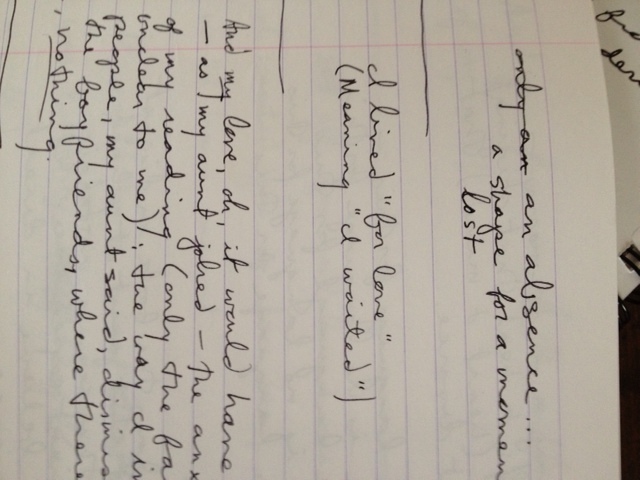 only an an absence...
a shape for a momen
lost
I lived "for love"
(Meaning "I waited")
And my love, oh, it would have
— as my aunt joked — the anx
of my reading (only the fa
unclear to me); the way I in
people, my aunt said, dismis
the boyfriends, where there
, nothing.